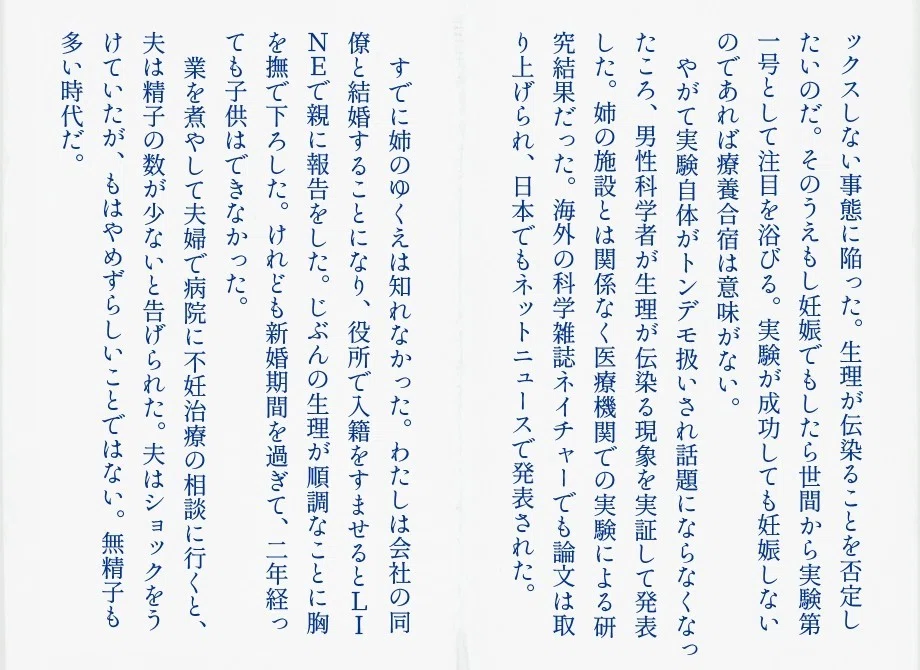 ックスしない事態に陥った。生理が伝染ることを否定し
たいのだ。そのうえもし妊娠でもしたら世間から実験第
一号として注目を浴びる。実験が成功しても妊娠しない
のであれば療養合宿は意味がない。
やがて実験自体がトンデモ扱いされ話題にならなくなっ
たころ、男性科学者が生理が伝染る現象を実証して発表
した。姉の施設とは関係なく医療機関での実験による研
究結果だった。海外の科学雑誌ネイチャーでも論文は取
り上げられ、日本でもネットニュースで発表された。
すでに姉のゆくえは知れなかった。わたしは会社の同
僚と結婚することになり、役所で入籍をすませるとLI
NEで親に報告をした。じぶんの生理が順調なことに胸
を撫で下ろした。けれども新婚期間を過ぎて、二年経っ
ても子供はできなかった。
業を煮やして夫婦で病院に不妊治療の相談に行くと、
夫は精子の数が少ないと告げられた。夫はショックをう
けていたが、もはやめずらしいことではない。無精子も
多い時代だ。